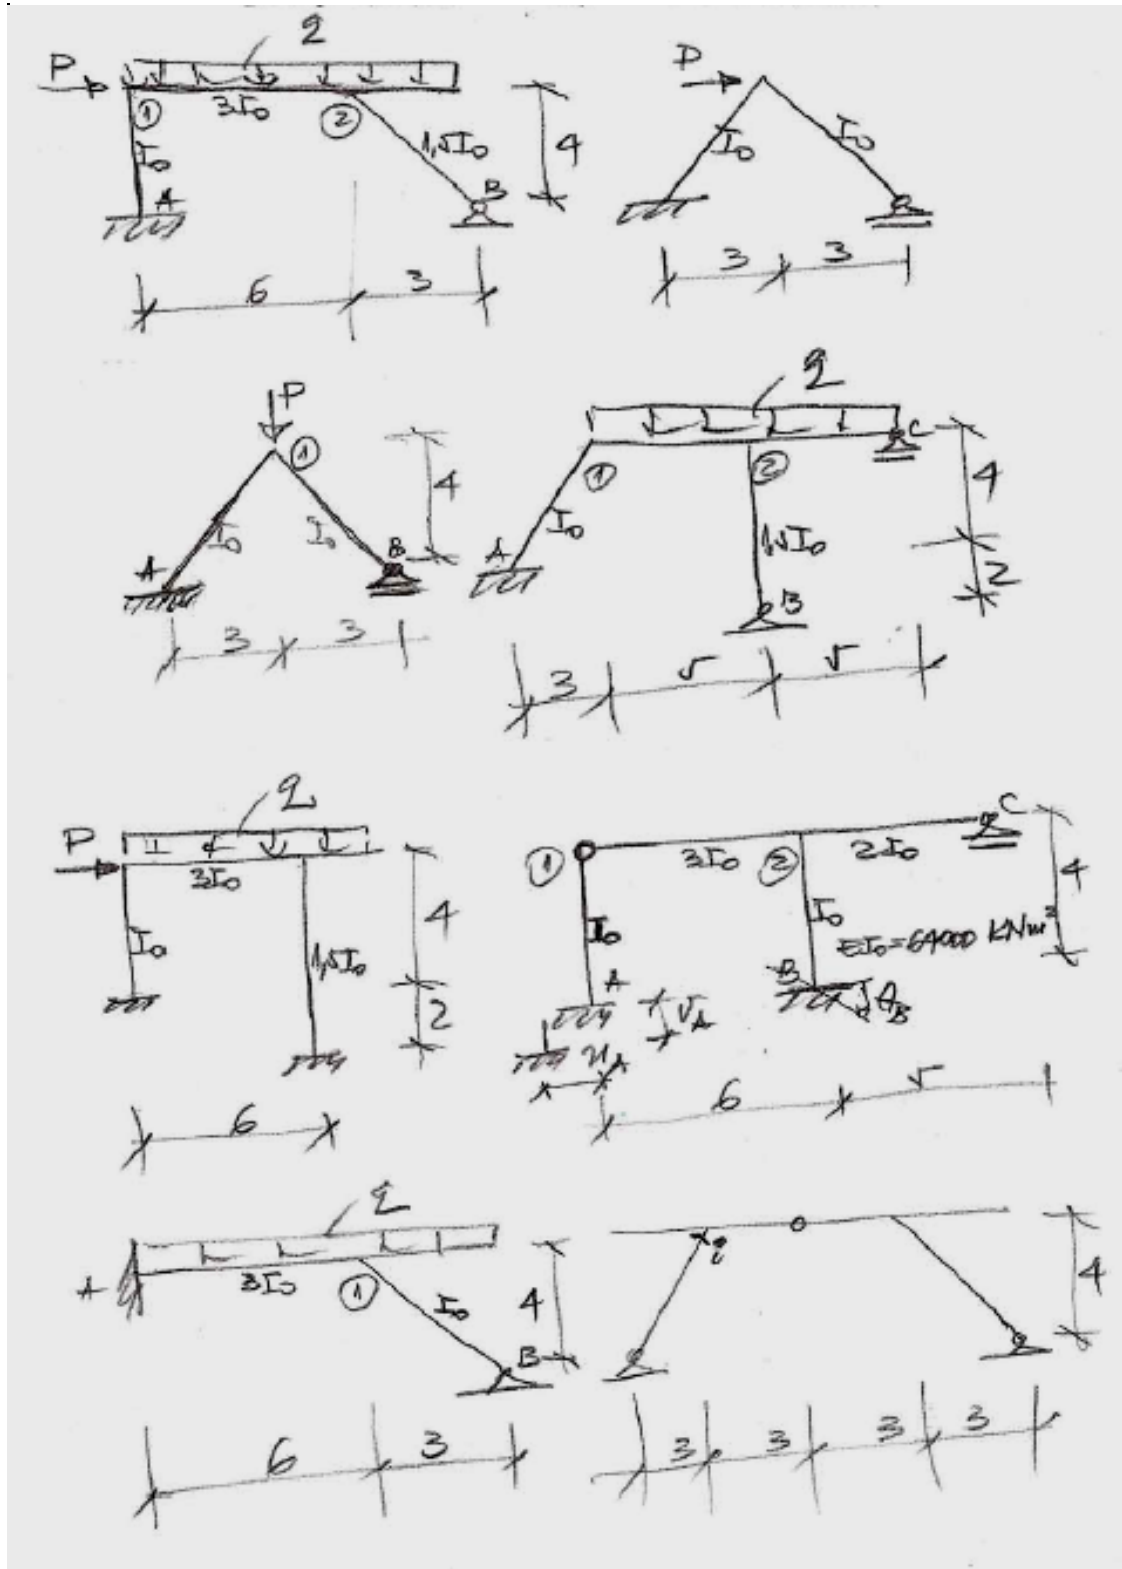 q
P
① 3I₀ ②
I₀
1,5I₀
A
B
4
6 3
P
I₀ I₀
3 3
P
①
I₀ I₀
A B
4
3 3
q
C
① ②
I₀
A
1,5I₀
B
4
2
3 5 5
q
P
3I₀
I₀
1,5I₀
4
2
6
C
① 3I₀ ② 2I₀
I₀ I₀
EI₀=64000 KNm²
A
B
θ_B
v_A
u_A
4
6 5
q
A
3I₀ ①
I₀
B
4
6 3
i
4
3 3 3 3